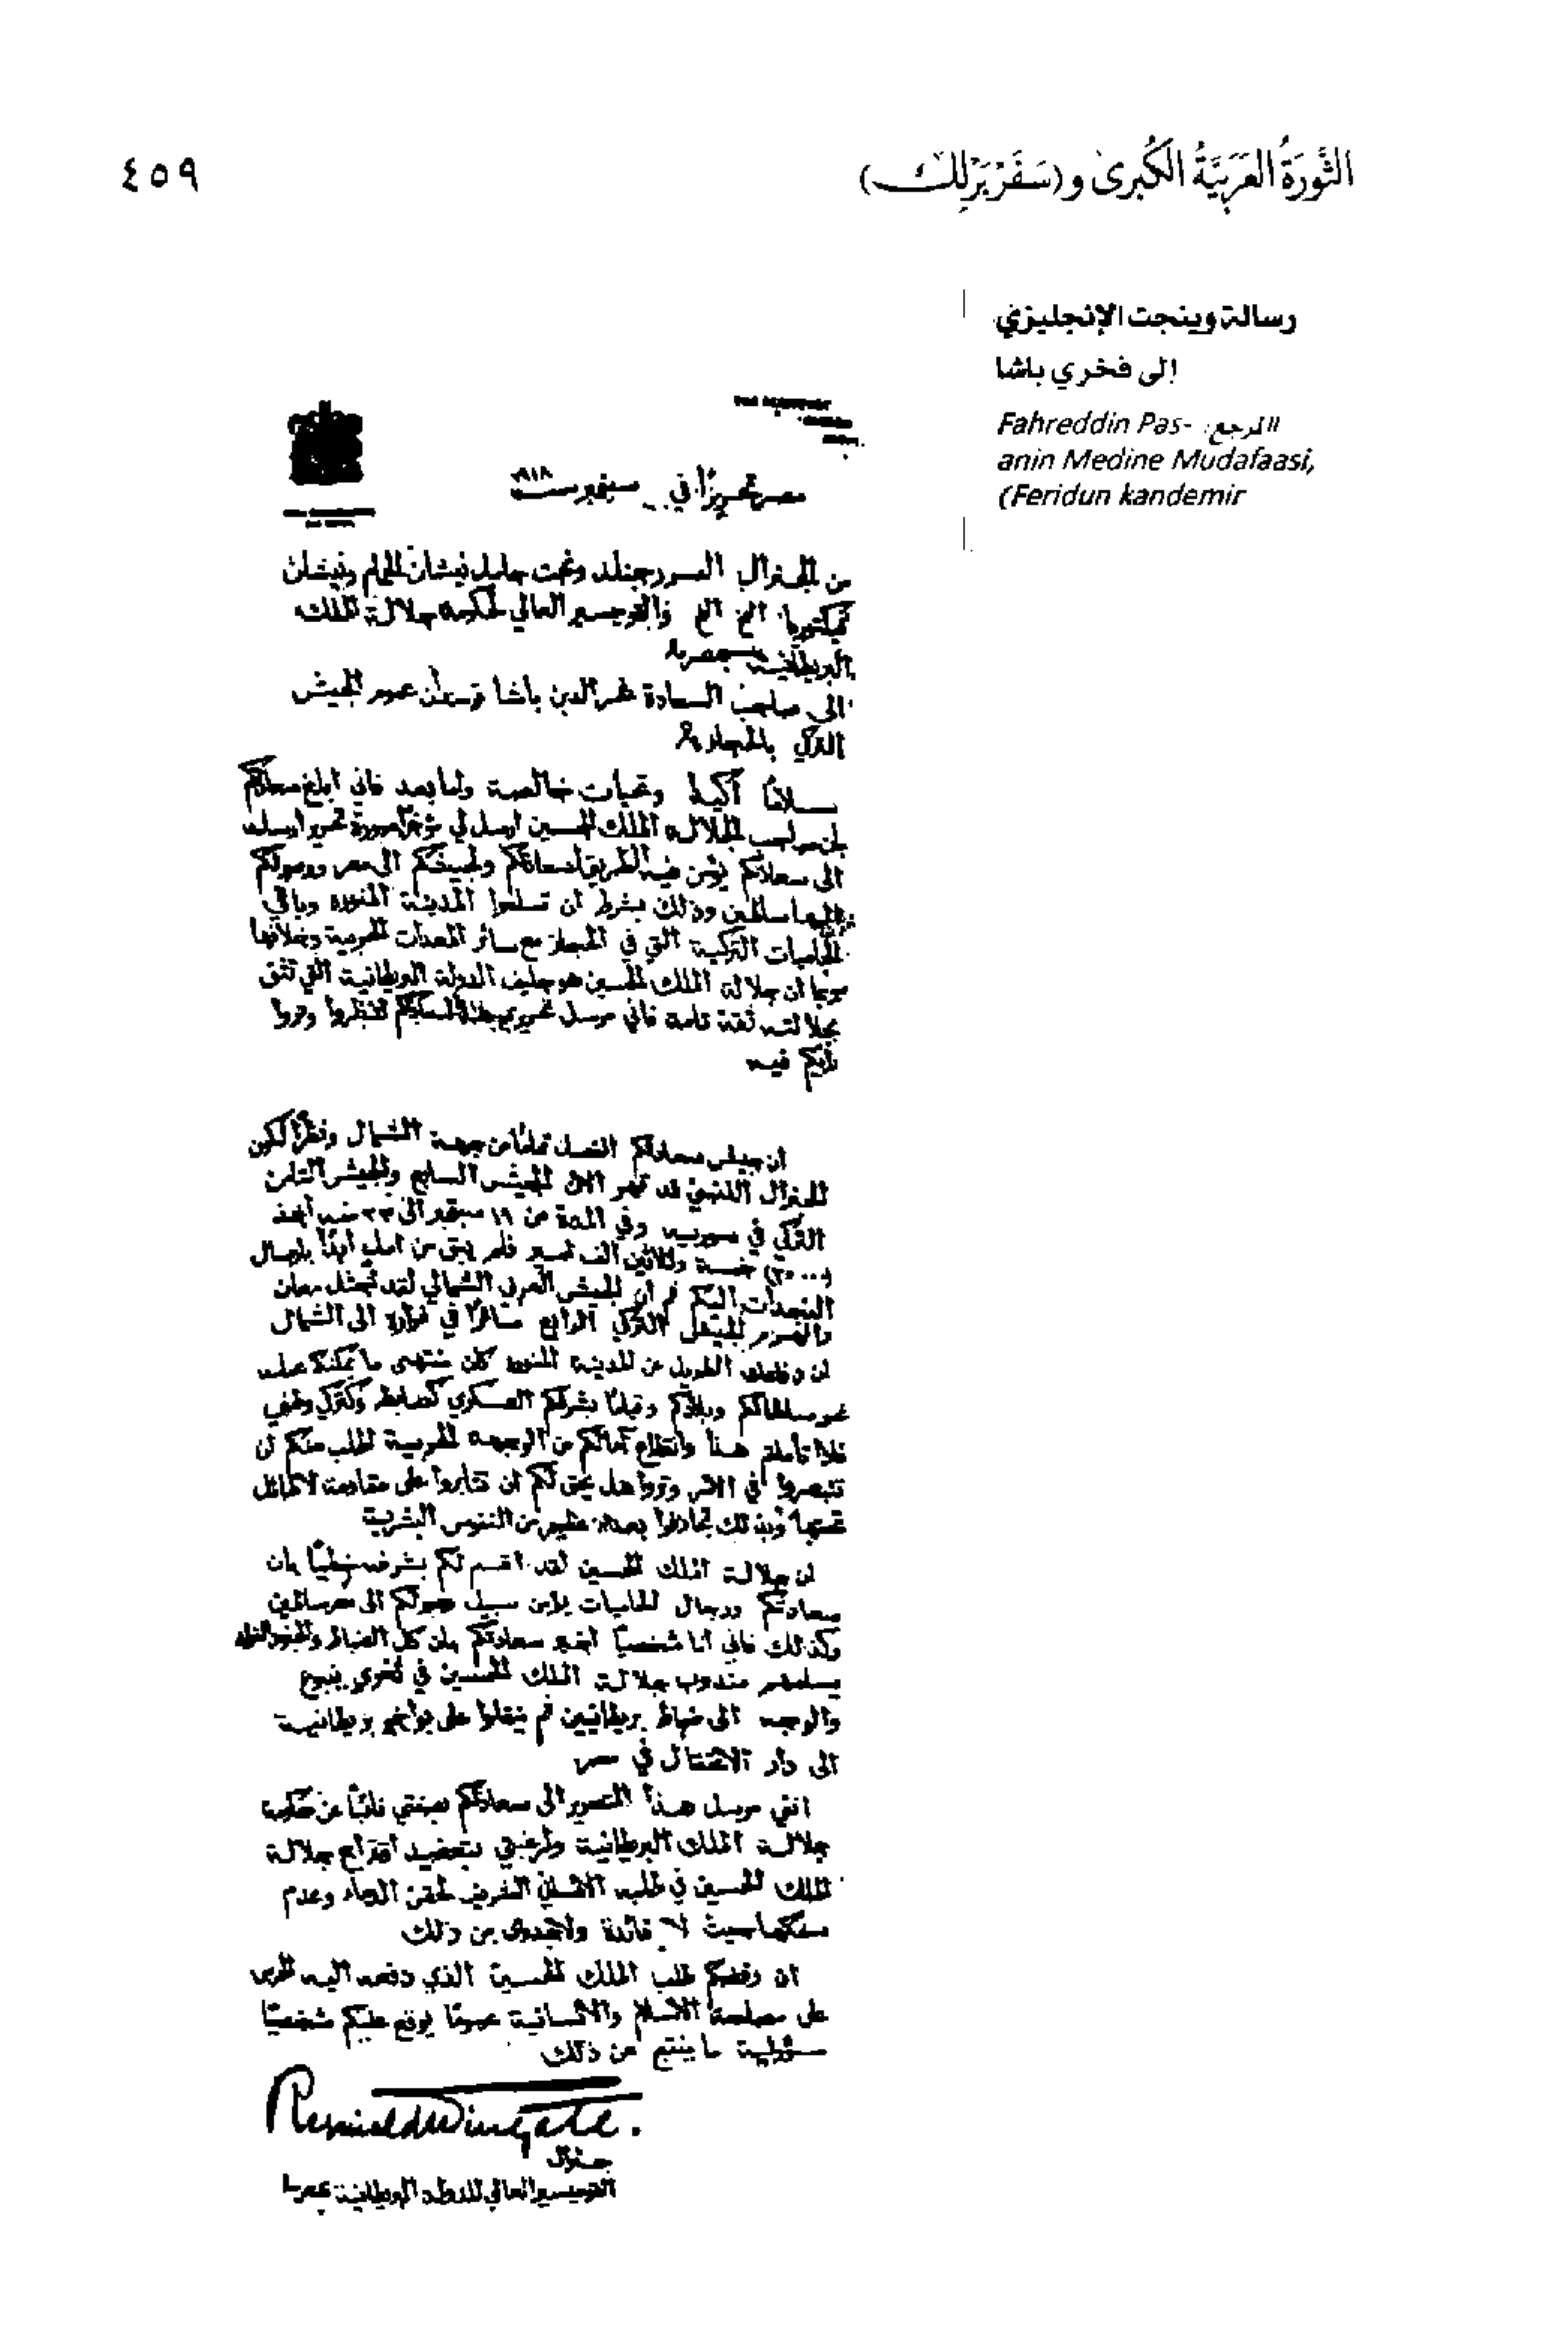 الثَّورَةُ العَرَبِيَّةُ الكُبرىٰ و(سَفَرْبَرْلِك)
٤٥٩
رسالة وينجت الإنجليزي
إلى فخري باشا
المرجع: Fahreddin Pas-
anin Medine Mudafaasi,
(Feridun kandemir
مصر تحريرًا في سبتمبر سنة ١٩١٨
من الجنرال السر رجنلد ونجت حامل نيشان الحمام ونيشان
فيكتوريا الخ الخ والقوميسير العالي لحكومة جلالة الملك
البريطانية بمصر
الى صاحب السعادة فخر الدين باشا قومندان عموم الجيش
التركي بالحجاز
سلامًا أكيدا وتحيات خالصة واما بعد فاني ابلغ سعادتكم
بان صاحب الجلالة الملك الحسين ارسل لي مؤخرًا صورة تحرير ارسله
الى سعادتكم يؤمن فيه الطريق لسعادتكم ولجيشكم الى مصر ووصولكم
اليها سالمين وذلك بشرط ان تسلموا المدينة المنورة وباقي
الحاميات التركية التي في الحجاز مع سائر المعدات الحربية وخلافها
وبما ان جلالة الملك الحسين هو حليف الدولة البريطانية التي تثق
بجلالته ثقة تامة فاني مرسل تحريري هذا لسعادتكم لتنظروا وتروا
رأيكم فيه
ان جيش سعادتكم انفصل تمامًا من جهة الشمال ونظرًا لكون
الجنرال اللنبي قد قهر الآن الجيش السابع والجيش الثامن
التركي في سوريه وفي المدة من ١٩ سبتمبر الى ٢٣ منه أخذ
خمسة وثلاثين الف اسير فلم يبق من امل أبدًا بارسال
النجدات اليكم ثم ان الجيش العربي الشمالي لقد احتل معان
والجيش التركي الرابع في فراره الى الشمال
ان دفاعكم الطويل عن المدينة المنورة كان منتهى ما يمكنكم عمله
نحو سلطانكم وبلادكم وقيامًا بشرفكم العسكري كضابط وكتركي وطني
هذا وانقطاع آمالكم من الوجهة الحربية اطلب منكم ان
تتبصروا في الامر وتروا هل يحق لكم ان تثابروا على مقاومة لا طائل
تحتها وبذلك تجازفوا بعدد عظيم من النفوس البشرية
ان جلالة الملك الحسين لقد اقسم لكم بشرفه خطيًا بان
سعادتكم ورجال الحاميات يؤمن سبيل وصولكم الى مصر سالمين
وكذلك فاني انا شخصيًا اخبر سعادتكم بان كل الضباط والجنود الذين
يسلمهم مندوب جلالة الملك الحسين في ثغري ينبع
والوجه الى ضباط بريطانيين ثم ينقلوا على بواخر بريطانية
الى دار الاعتقال في مصر
انني مرسل هذا التحرير الى سعادتكم بصفتي نائبًا عن حكومة
جلالة الملك البريطانية ولرغبتي بتعضيد اقتراح جلالة
الملك الحسين في طلبه الانساني الشريف لحقن الدماء وعدم
سفكها حيث لا فائدة ولا جدوى من ذلك
ان رفضكم طلب الملك الحسين الذي دفعه اليه الحرص
على مصلحة الاسلام والانسانية عمومًا يوقع عليكم شخصيًا
مسؤولية ما ينتج عن ذلك
Reginald Wingate.
جنرال
القوميسير العالي للدولة البريطانية بمصر